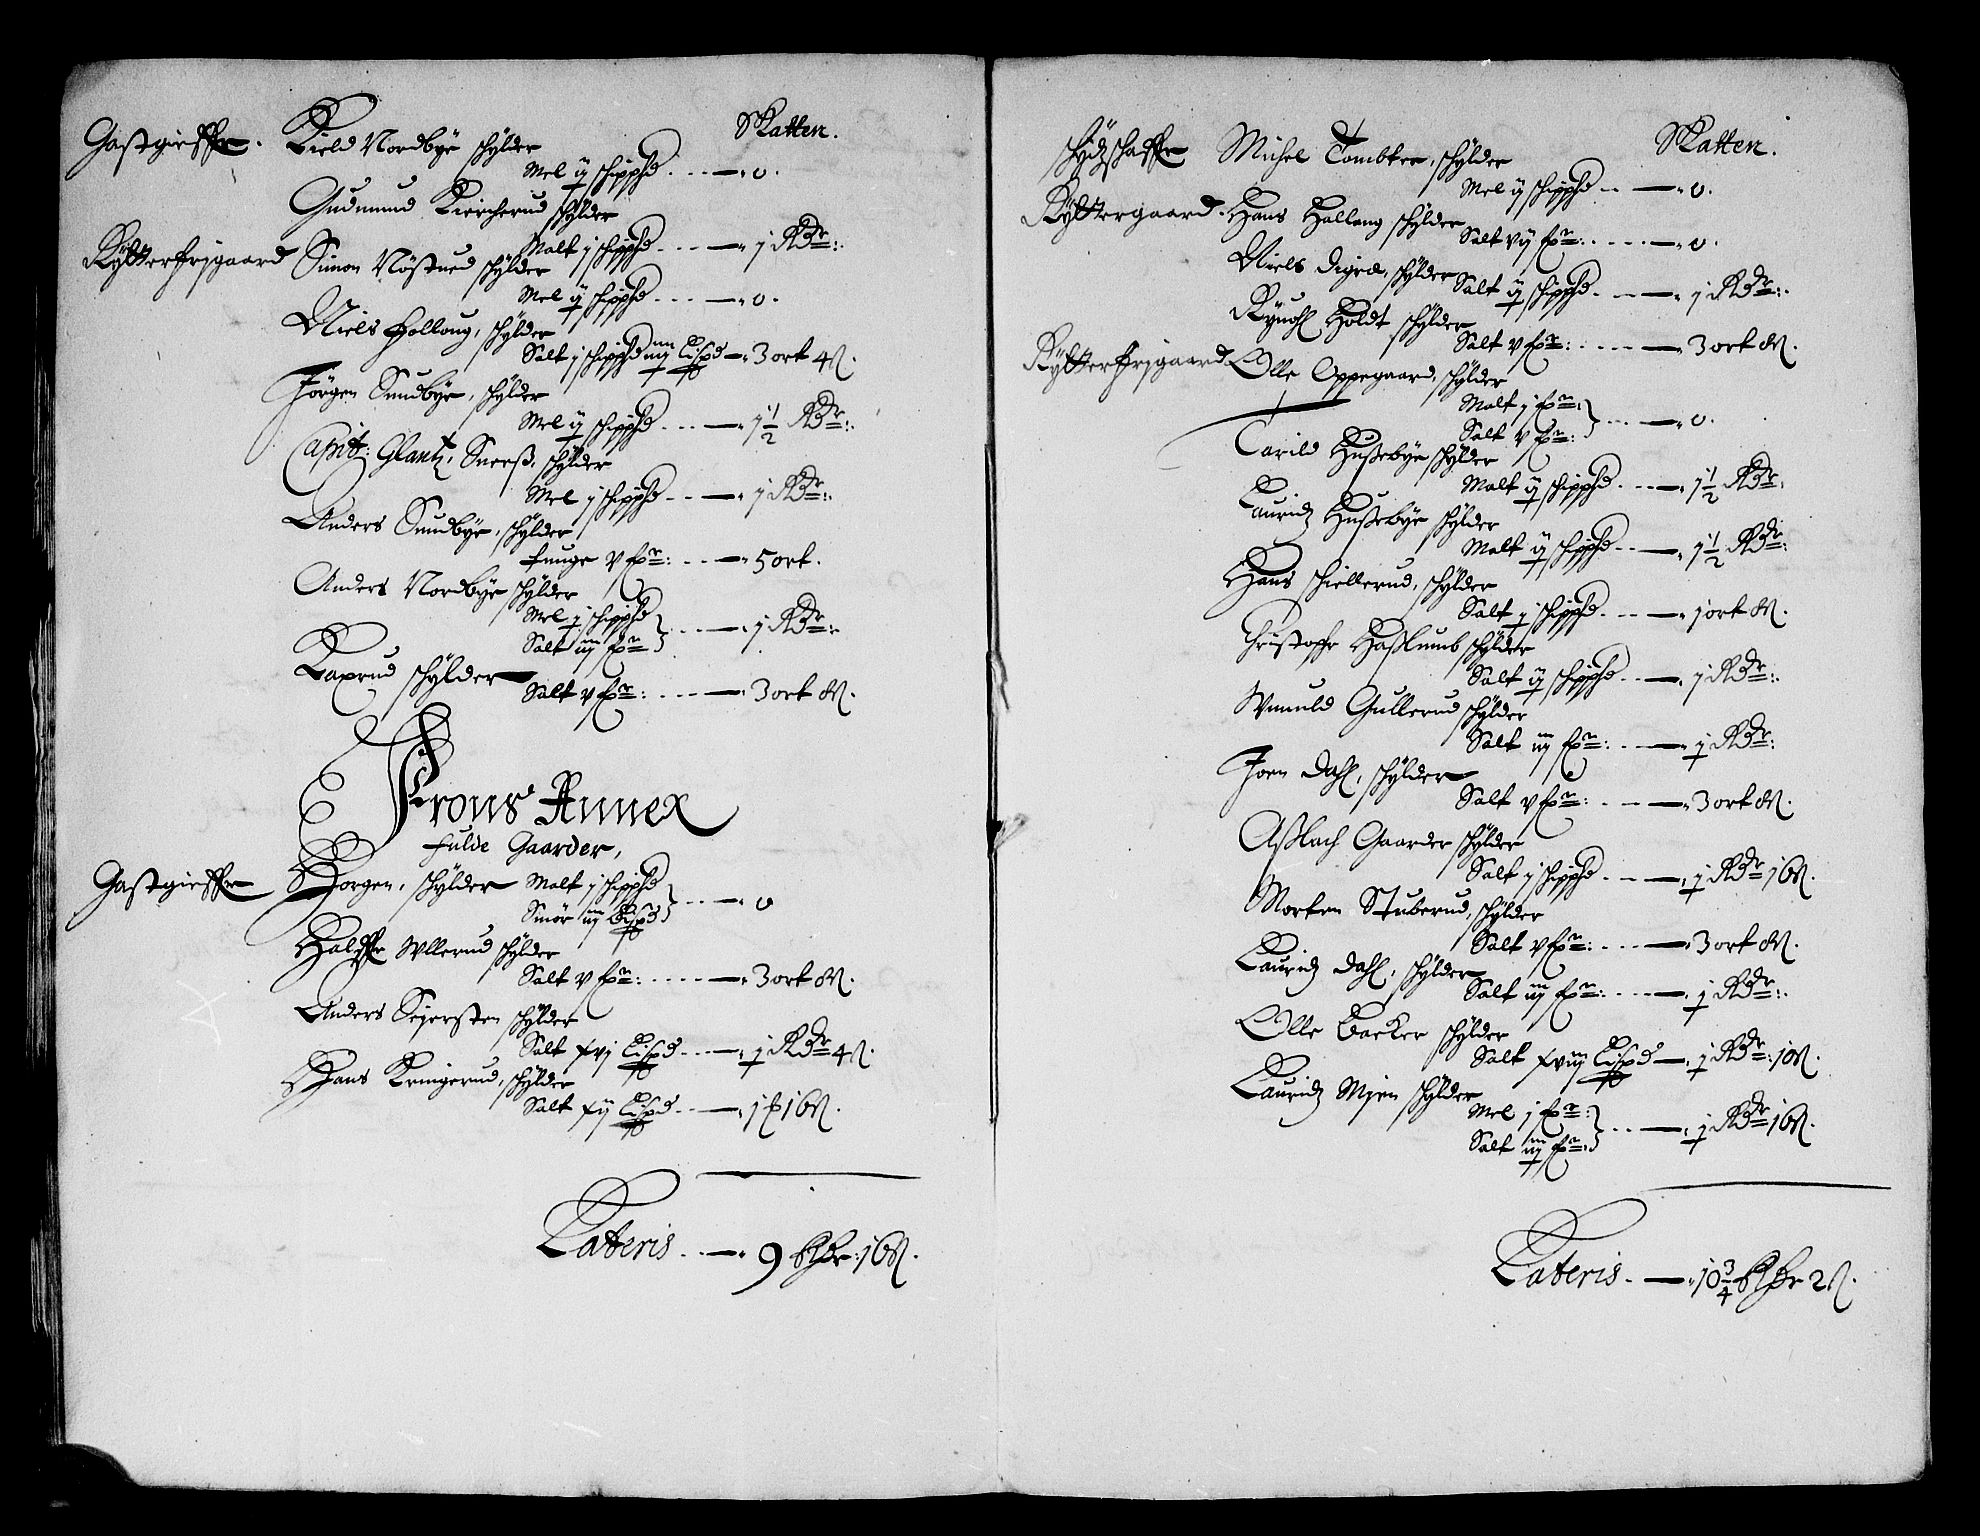 Skatten.
Gastgieffr. Kield Nordbye schylder
Mel ij schippd — 0.
Gudmund Kiercherud schylder
Malt j schippd — j Rdr:
Rytterfrjgaard Simon Nöstued schylder
Mel ij schippd — 0.
Niels Hollong, schylder
Salt j schippd iiij Lispd — 3 ort 4 s.
Jörgen Sundbye, schylder
Mel ij schippd — 1 1/2 Rdr:
Capit: Glantz, Sneeß, schylder
Mel j schippd — j Rdr:
Anders Sundbye, schylder
tunge v fr: — 5 ort.
Anders Nordbye schylder
Mel j schippd
Salt iij fr — j Rdr:
Laxrud schylder
Salt v fr: — 3 ort 8 s.
Frons Annex
fulde Gaarder,
Gastgieffr Horgen, schylder Malt j schippd
Smör iij Lispd — 0
Haldffr Ullerud schylder
Salt v fr: — 3 ort 8 s.
Anders Sejersten schylder
Salt xvj Lispd — j Rdr 4 s.
Hans Kringerud, schylder
Salt xij Lispd — j ₣ 16 s.
Lateris — 9 Rdr: 16 s.
Skatten.
schydtzschaffr Michel Tombter, schylder
Mel ij schippd — 0.
Ryttergaard. Hans Hallang schylder
Salt vij fr: — 0.
Niels Digrd, schylder
Salt ij schippd — j Rdr:
Holdt schylder
Salt v fr: — 3 ort 8 s.
Rytterfrjgaard Olle Oppegaard, schylder
Malt j fr:
Salt v fr: — 0.
Tarild Hußebye schylder
Malt ij schippd — 1 1/2 Rdr.
Lauridz Hußebye schylder
Malt ij schippd — 1 1/2 Rdr:
Hans schiellerud, schylder
Salt j schippd — j ort 8 s.
Christoffr Haßlumb schylder
Salt ij schippd — j Rdr:
Gullerud schylder
Salt iij fr: — j Rdr:
Joen Dahl, schylder
Salt v fr: — 3 ort 8 s.
Aßlach Gaarder schylder
Salt j schippd — j Rdr 16 s.
Morten Stuberud, schylder
Salt v fr: — 3 ort 8 s.
Lauridz Dahl, schylder
Salt iij fr: — j Rdr:
Olle Baeker schylder
Salt xviij Lispd — j Rdr: 10 s.
Lauridz Mjen schylder
Mel j fr:
Salt iij fr: — j Rdr 16 s.
Lateris — 10 3/4 Rdr 2 s.